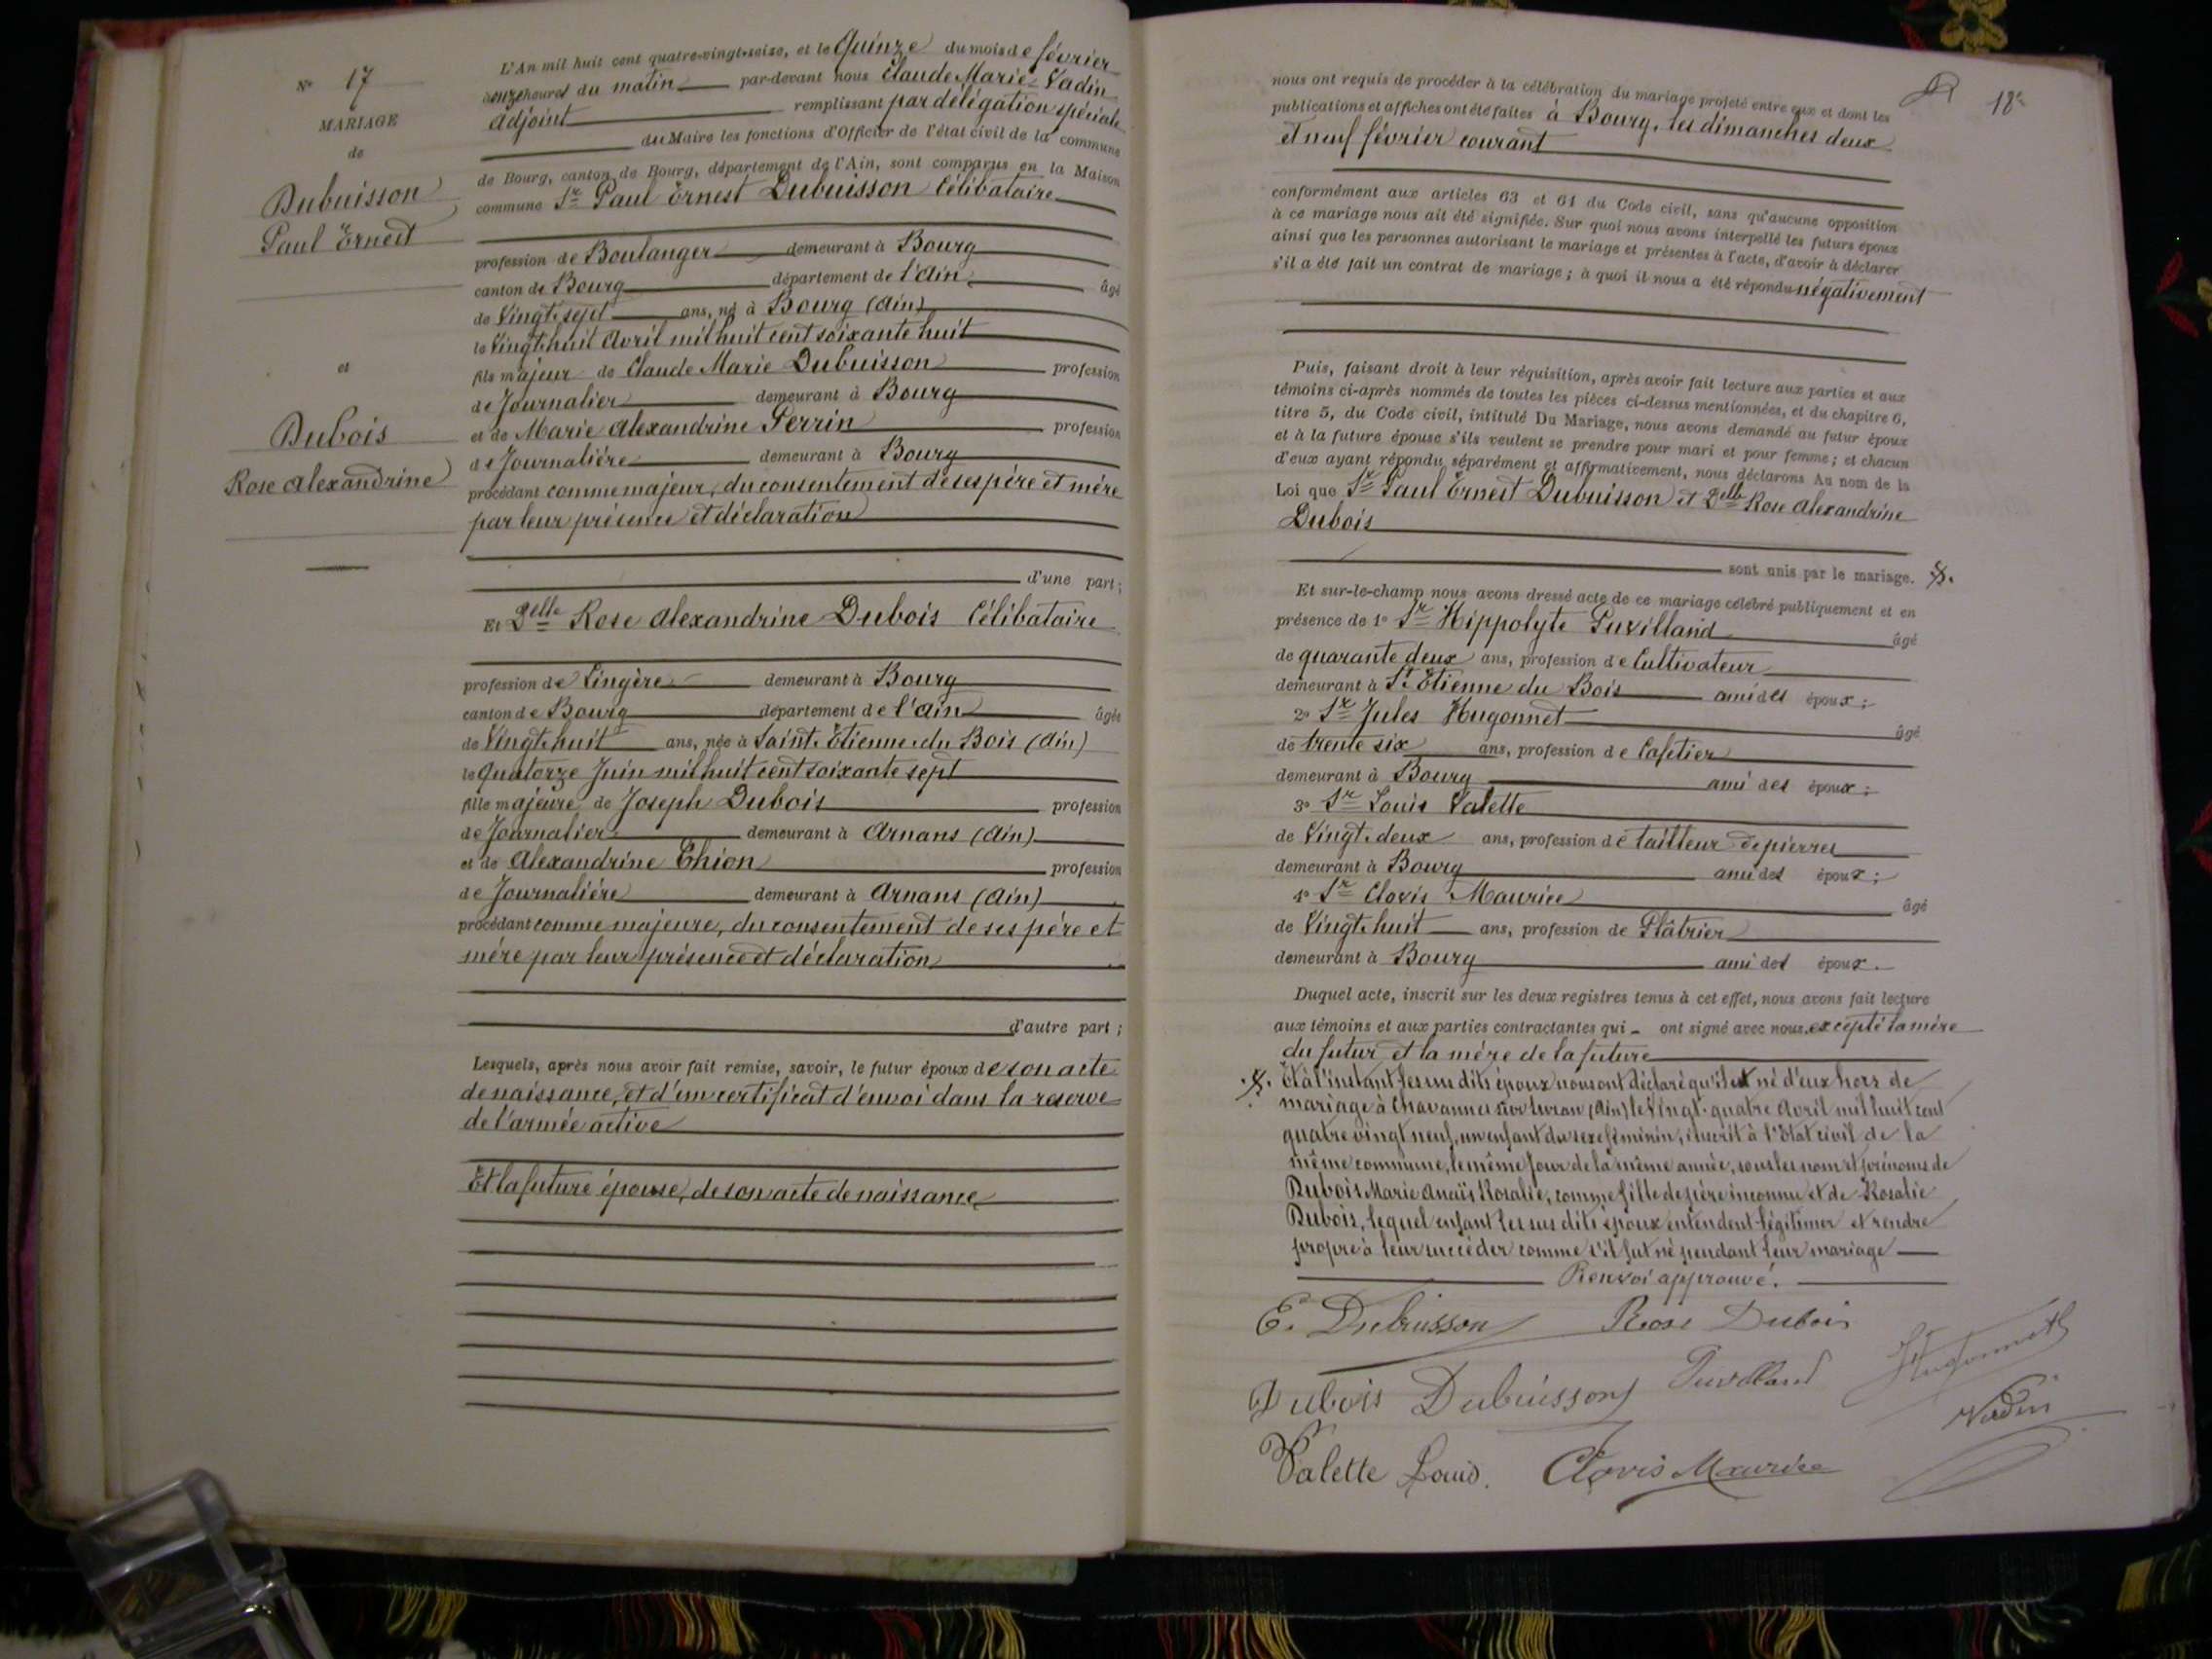 N° 17
MARIAGE
de
Dubuisson
Paul Ernest
et
Dubois
Rose Alexandrine
L'An mil huit cent quatre-vingt-seize, et le Quinze du mois de février
à onze heures du matin par-devant nous Claude Marie Vadin
Adjoint remplissant par délégation spéciale
du Maire les fonctions d'Officier de l'état civil de la commune
de Bourg, canton de Bourg, département de l'Ain, sont comparus en la Maison
commune Sr Paul Ernest Dubuisson Célibataire
profession de Boulanger demeurant à Bourg
canton de Bourg département de l'Ain âgé
de Vingt-sept ans, né à Bourg (Ain)
le Vingt-huit Avril mil huit cent soixante huit
fils majeur de Claude Marie Dubuisson profession
de Journalier demeurant à Bourg
et de Marie Alexandrine Perrin profession
de Journalière demeurant à Bourg
procédant comme majeur, du consentement de ses père et mère
par leur présence et déclaration
d'une part;
Et Delle Rose Alexandrine Dubois Célibataire
profession de Lingère demeurant à Bourg
canton de Bourg département de l'Ain âgée
de Vingt-huit ans, née à Saint-Etienne-du Bois (Ain)
le Quatorze Juin mil huit cent soixante sept
fille majeure de Joseph Dubois profession
de Journalier demeurant à Arnans (Ain)
et de Alexandrine Chion profession
de Journalière demeurant à Arnans (Ain)
procédant comme majeure, du consentement de ses père et
mère par leur présence et déclaration
d'autre part;
Lesquels, après nous avoir fait remise, savoir, le futur époux de son acte
de naissance, et d'un certificat d'envoi dans la reserve
de l'armée active
Et la future épouse, de son acte de naissance
18e
nous ont requis de procéder à la célébration du mariage projeté entre eux et dont les
publications et affiches ont été faites à Bourg, les dimanches deux
et neuf février courant
conformément aux articles 63 et 64 du Code civil, sans qu'aucune opposition
à ce mariage nous ait été signifiée. Sur quoi nous avons interpellé les futurs époux
ainsi que les personnes autorisant le mariage et présentes à l'acte, d'avoir à déclarer
s'il a été fait un contrat de mariage; à quoi il nous a été répondu négativement
Puis, faisant droit à leur réquisition, après avoir fait lecture aux parties et aux
témoins ci-après nommés de toutes les pièces ci-dessus mentionnées, et du chapitre 6,
titre 5, du Code civil, intitulé Du Mariage, nous avons demandé au futur époux
et à la future épouse s'ils veulent se prendre pour mari et pour femme; et chacun
d'eux ayant répondu séparément et affirmativement, nous déclarons Au nom de la
Loi que Sr Paul Ernest Dubuisson et Delle Rose Alexandrine
Dubois
sont unis par le mariage.
Et sur-le-champ nous avons dressé acte de ce mariage célébré publiquement et en
présence de 1° Sr Hippolyte Puvilland âgé
de quarante deux ans, profession de Cultivateur
demeurant à St Etienne du Bois ami des époux;
2° Sr Jules Hugonnet âgé
de trente six ans, profession de Cafetier
demeurant à Bourg ami des époux;
3° Sr Louis Valette
de Vingt-deux ans, profession de tailleur de pierres
demeurant à Bourg ami des époux;
4° Sr Clovis Maurice âgé
de Vingt-huit ans, profession de Plâtrier
demeurant à Bourg ami des époux.
Duquel acte, inscrit sur les deux registres tenus à cet effet, nous avons fait lecture
aux témoins et aux parties contractantes qui ont signé avec nous, excepté la mère
du futur et la mère de la future
Et à l'instant les sus dits époux nous ont déclaré qu'il est né d'eux hors de
mariage à Chavannes sur Suran (Ain) le Vingt-quatre Avril mil huit cent
quatre vingt neuf, un enfant du sexe féminin, inscrit à l'Etat civil de la
même commune, le même jour de la même année, sous les nom et prénoms de
Dubois Marie Anaïs Rosalie, comme fille de père inconnu et de Rosalie
Dubois, lequel enfant les sus dits époux entendent légitimer et rendre
propre à leur succéder comme s'il fut né pendant leur mariage
Renvoi approuvé.
E. Dubuisson Rose Dubois
Dubois Dubuisson Puvilland Hugonnet
Vadin
Valette Louis. Clovis Maurice